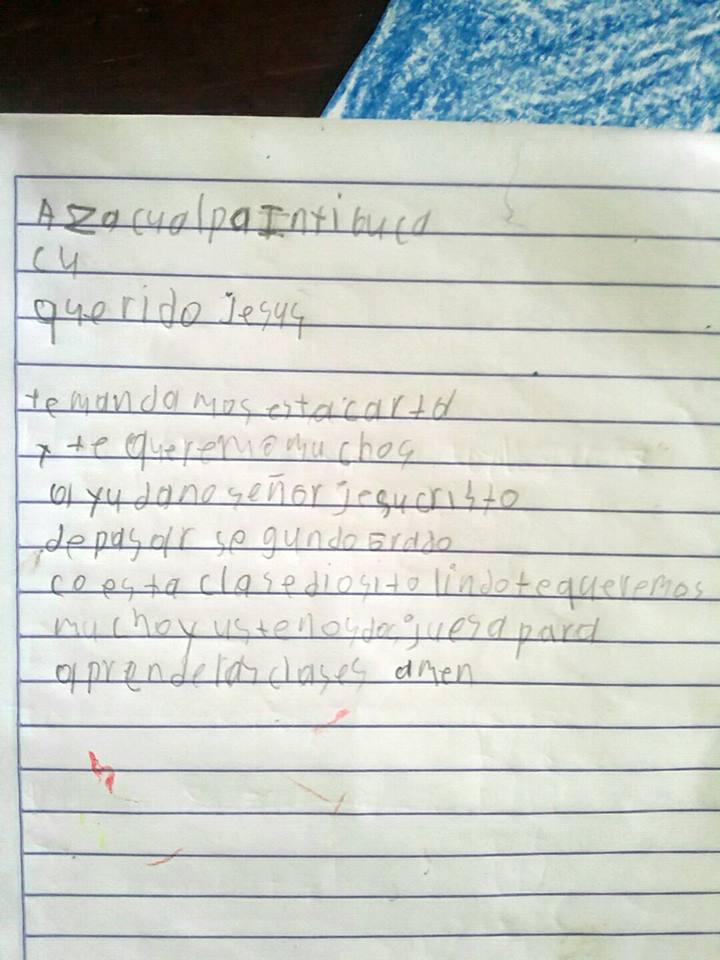 AzacualpaIntibuca
cu
querido jesus
te mandamos esta carta
y te queremo muchos
ayudano señor jesucristo
de pasar segundo grado
co esta clase diosito lindo te queremos
mucho y uste nos da juesa para
aprender las clases amen